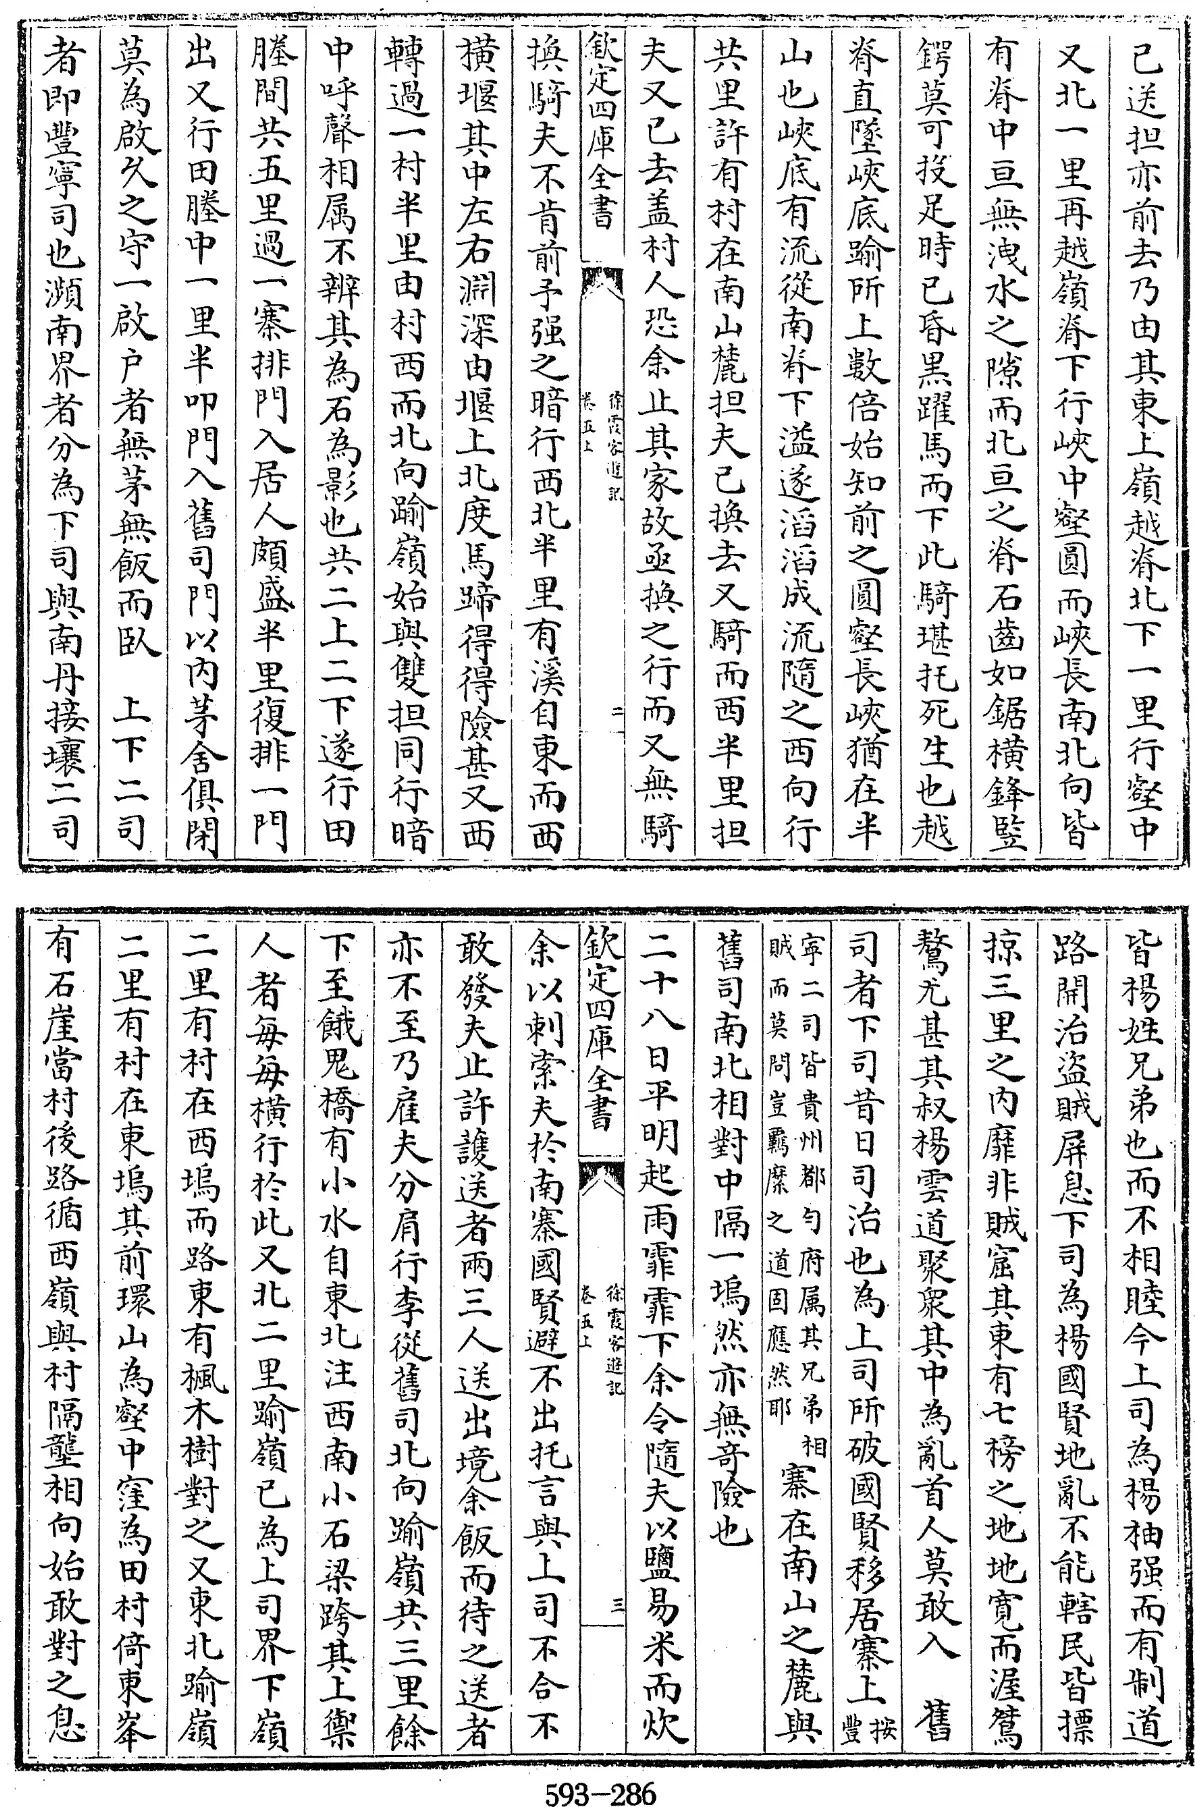 已送担亦前去乃由其東上嶺越脊北下一里行壑中
又北一里再越嶺脊下行峽中壑圓而峽長南北向皆
有脊中亘無洩水之隙而北亘之脊石齒如鋸横鋒豎
鍔莫可投足時已昏黒躍馬而下此騎堪托死生也越
脊直墜峽底踰所上數倍始知前之圓壑長峽猶在半
山也峽底有流從南脊下溢遂滔滔成流隨之西向行
共里許有村在南山麓担夫已換去又騎而西半里担
夫又已去盖村人恐余止其家故亟換之行而又無騎
欽定四庫全書
徐霞客遊記
卷五上
二
換騎夫不肯前予强之暗行西北半里有溪自東而西
横堰其中左右淵深由堰上北度馬蹄得得險甚又西
轉過一村半里由村西而北向踰嶺始與雙担同行暗
中呼聲相属不辨其為石為影也共二上二下遂行田
塍間共五里過一寨排門入居人頗盛半里復排一門
出又行田塍中一里半叩門入舊司門以内茅舍俱閉
莫為啟久之守一啟户者無茅無飯而臥　上下二司
者即豐寧司也瀕南界者分為下司與南丹接壤二司
皆楊姓兄弟也而不相睦今上司為楊柚强而有制道
路開治盗賊屏息下司為楊國賢地亂不能轄民皆摽
掠三里之内靡非賊窟其東有七榜之地地寛而渥鴛
鶩尤甚其叔楊雲道聚衆其中為亂首人莫敢入　舊
司者下司昔日司治也為上司所破國賢移居寨上按豐
寧二司皆貴州都匀府属其兄弟相
賊而莫問豈羈縻之道固應然耶
寨在南山之麓與
舊司南北相對中隔一塢然亦無奇險也
二十八日平明起雨霏霏下余令隨夫以鹽易米而炊
欽定四庫全書
徐霞客遊記
卷五上
三
余以刺索夫於南寨國賢避不出托言與上司不合不
敢發夫止許護送者兩三人送出境余飯而待之送者
亦不至乃雇夫分肩行李從舊司北向踰嶺共三里餘
下至餓鬼橋有小水自東北注西南小石梁跨其上禦
人者每每横行於此又北二里踰嶺已為上司界下嶺
二里有村在西塢而路東有楓木樹對之又東北踰嶺
二里有村在東塢其前環山為壑中窪為田村倚東峯
有石崖當村後路循西嶺與村隔壟相向始敢對之息
593-286